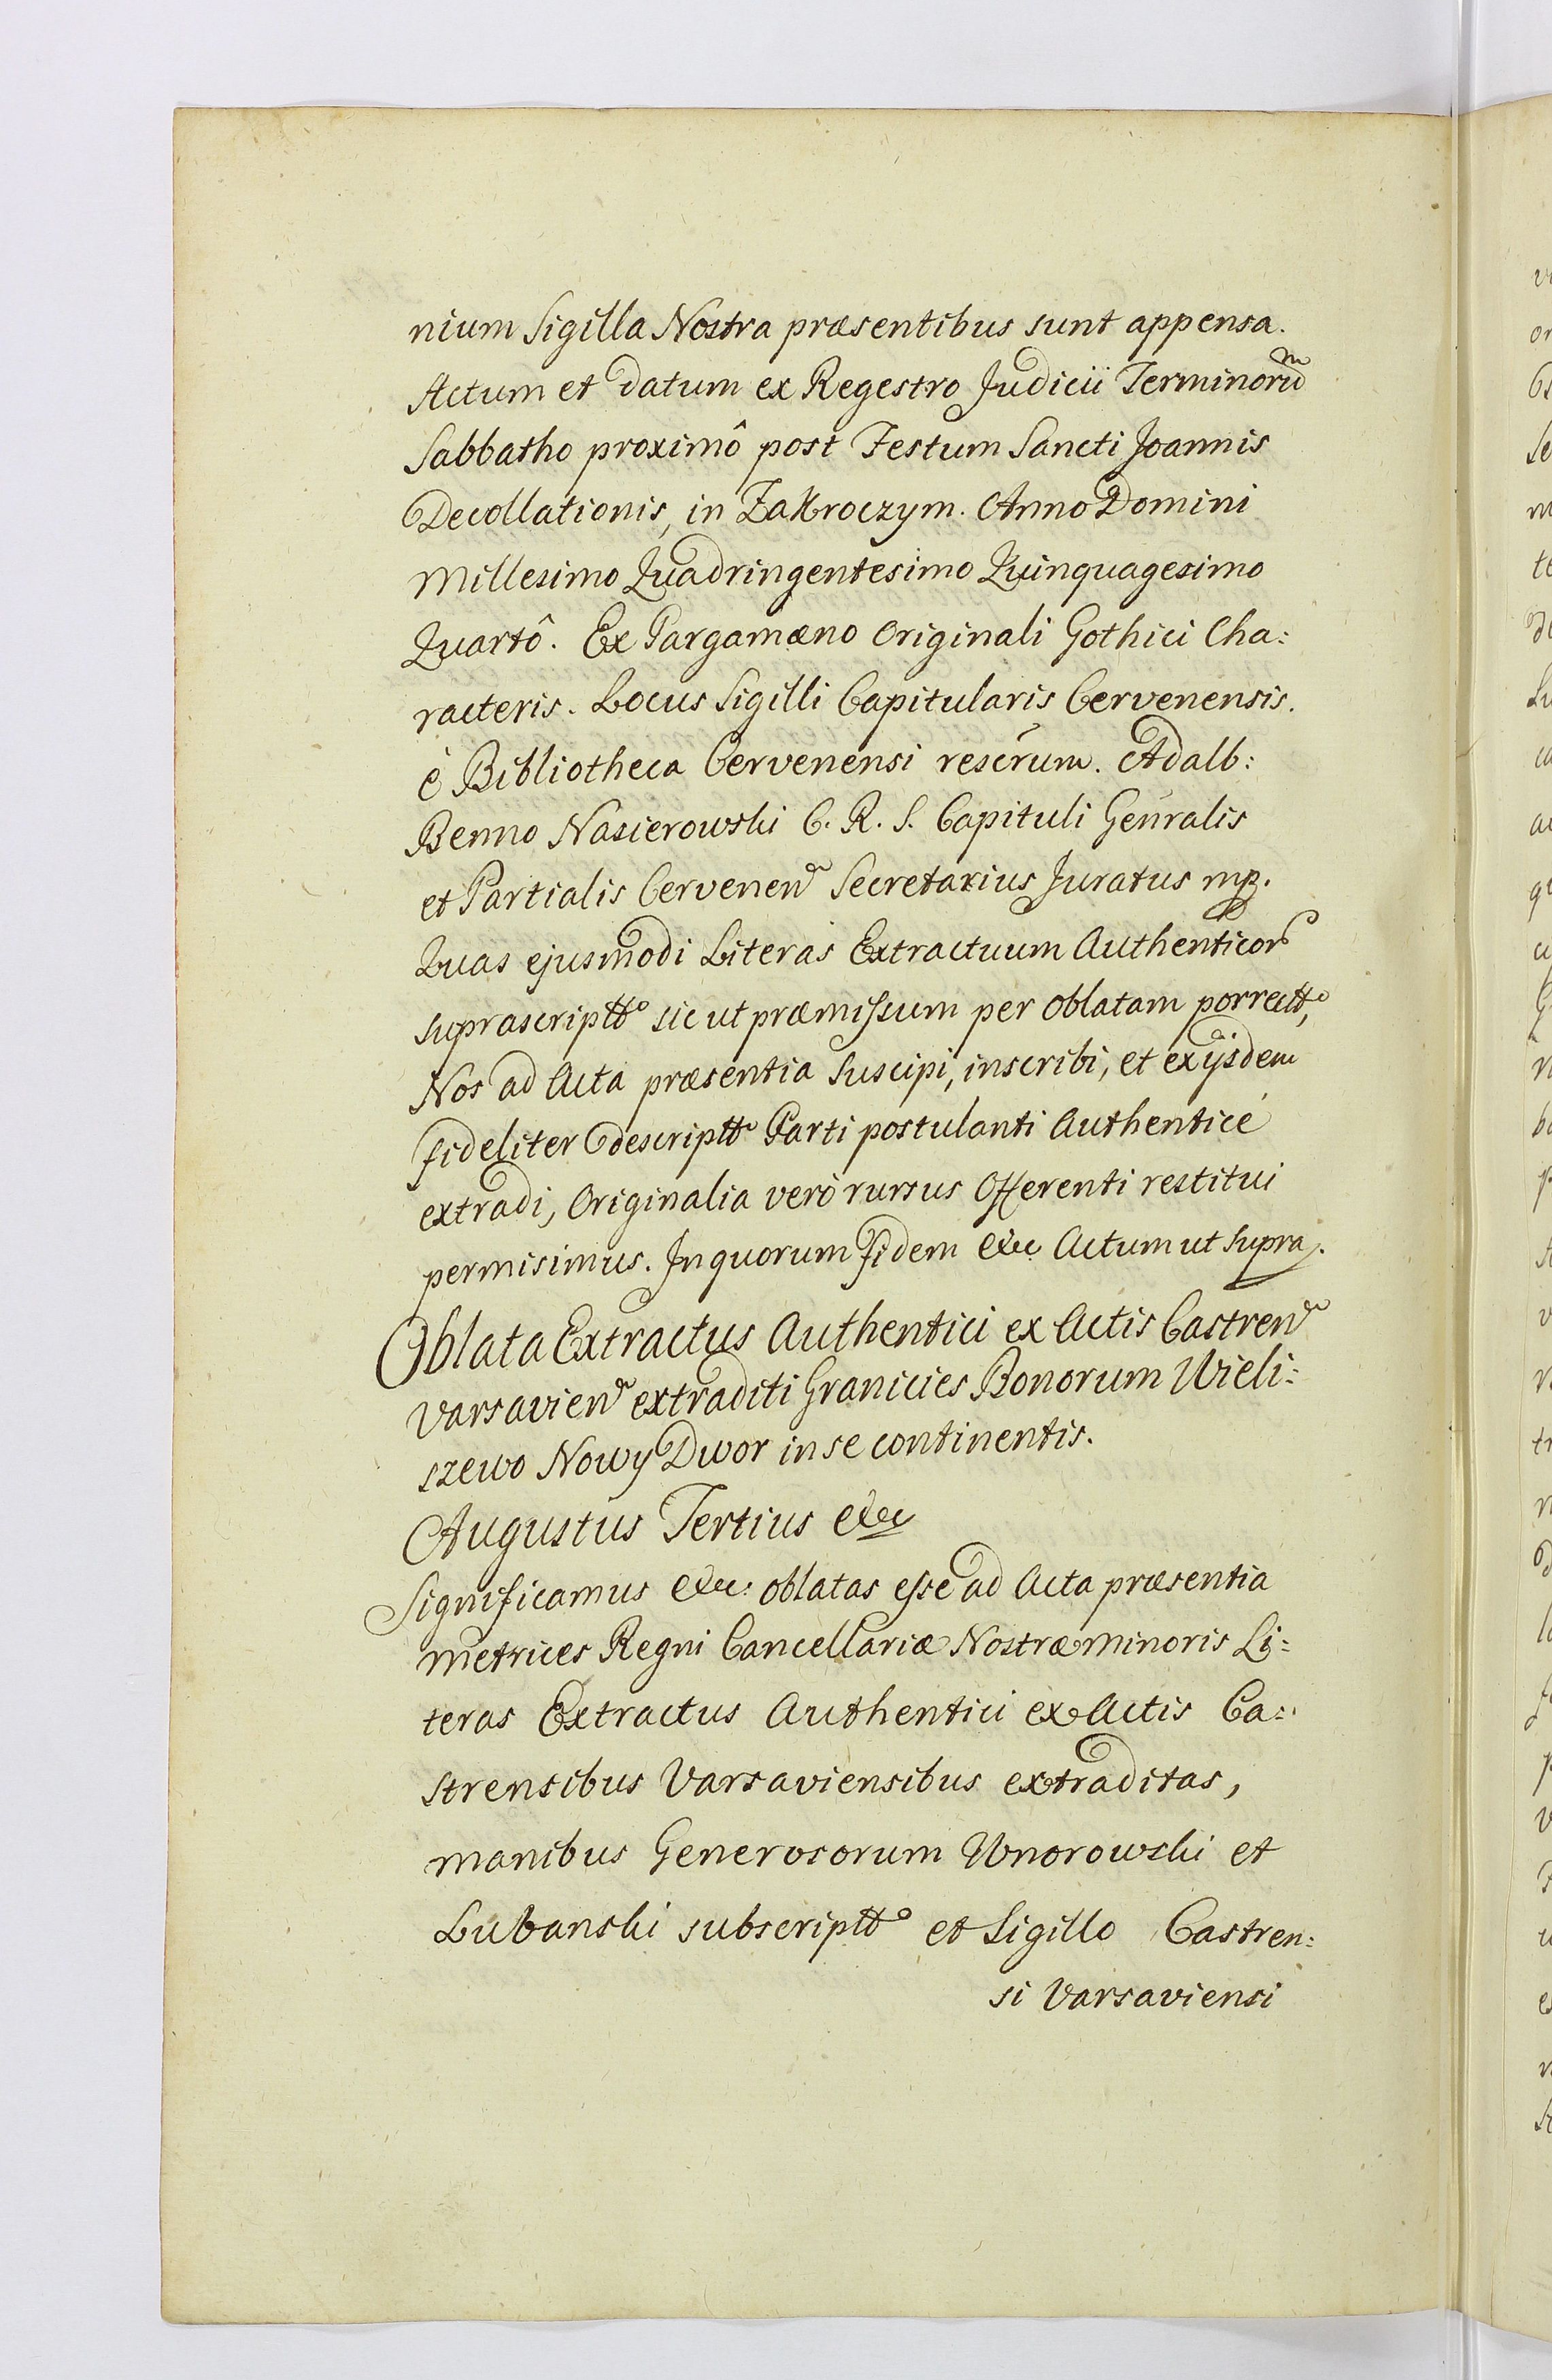 nium Sigilla Nostra præsentibus sunt appensa.
Actum et datum ex Regestro Judicii Terminorũm
Sabbatho proximô post Festum Sancti Joannis
Decollationis, in Zakroczym. Anno Domini
Millesimo Quadringentesimo Quinquagesimo
Quartô. Ex Pargamæno Originali Gothici Cha:
racteris. Locus Sigilli Capitularis Cervenensis.
è Bibliotheca Cervenensi rescrum. Adalb:
Benno Nasierowski C. R. S. Capituli Genralis
et Partialis Cervenen Secretarius Juratus mp.
Quas ejusmodi Literas Extractuum Authenticor
suprascriptt sic ut præmissum per Oblatam porrectt,
Nos ad Acta præsentia suscipi, inscribi, et ex ijsdem
fideliter descriptt Parti postulanti Authenticè
extradi, Originalia verò rursus Offerenti restitui
permisimus. In quorum fidem etc Actum ut supra.
Oblata Extractus Authentici ex Actis Castren
Varsavien extraditi Granicies Bonorum Wieli:
szewo Nowy Dwor in se continentis.
Augustus Tertius etc
Significamus etc: oblatas esse ad Acta præsentia
Metrices Regni Cancellariæ Nostræ minoris Li:
teras Extractus Authentici ex Actis Ca:
strensibus Varsaviensibus extraditas,
manibus Generosorum Unorowski et
Lubanski subscriptt et Sigillo Castren:
si Varsaviensi